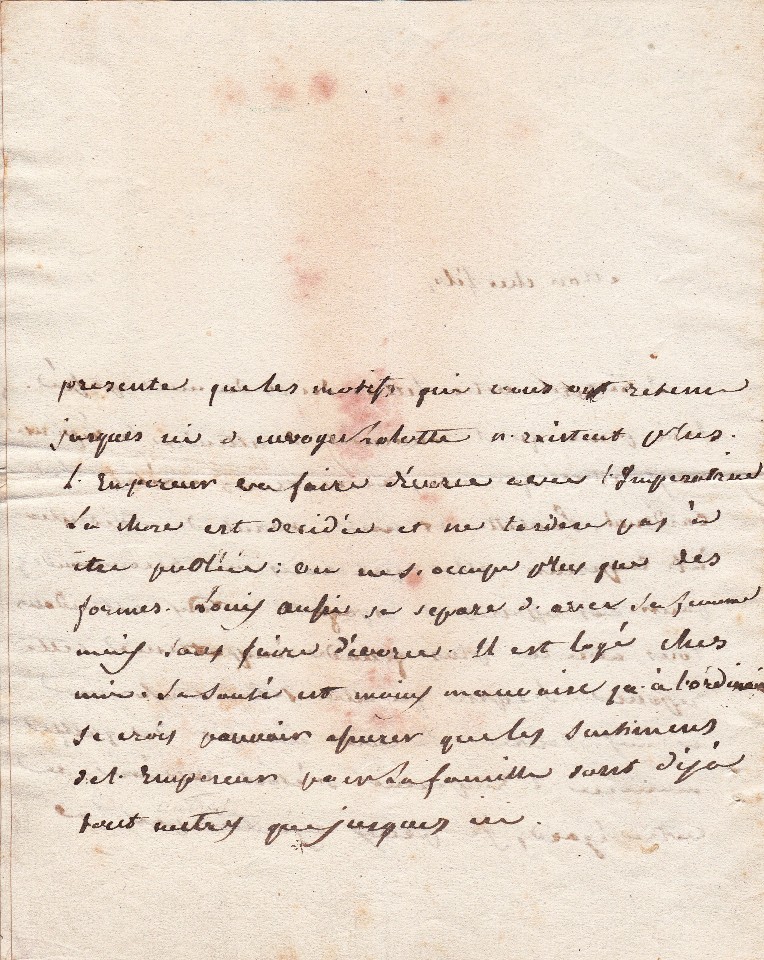 presente que les motifs qui vous ont retenu
jusques ici d'envoyer Lolotte n'existent plus.
L'Empereur va faire divorce avec l'Imperatrice
La chose est decidée et ne tardera pas à
être publiée: on ne s'occupe plus que des
formes. Louis aussi se separe d'avec sa femme
mais sans faire divorce. Il est logé chez
moi. Sa santé est moins mauvaise qu'à l'ordinaire
Je crois pouvoir assurer que les sentimens
de l'Empereur pour la famille sont déjà
tout autres que jusques ici.